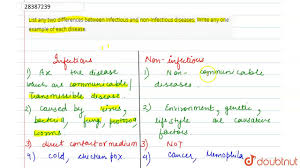 28387239
List any two differences between infectious and non-infectious diseases. Write any one
example of each disease.
Infectious
Non-infectious
1) Are the disease
which are communicable/
Transmissible disease
1) Non- communicable
diseases
2) caused by virus,
bacteria, fungi, protozoa,
worms
2) Environment, genetic,
lifestyle are causative
factors
3) direct contact or medium
3) NOT
4) cold, chicken pox
4) Cancer, Hemophilia
doubtnut